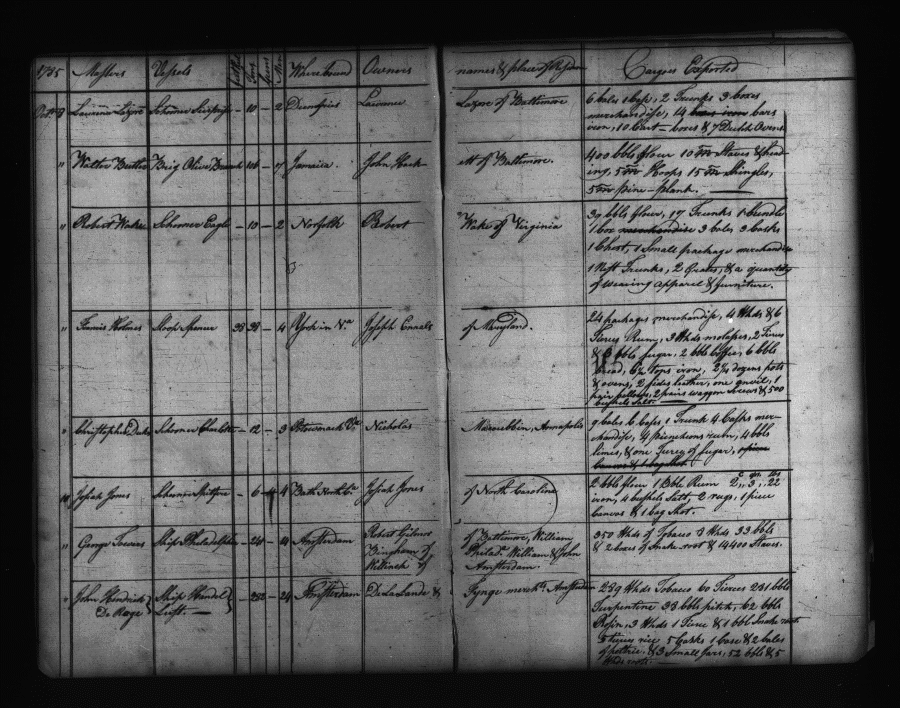 1785 Masters Vessels Guns Men Where bound Owners names & place of Residen Cargoes Exported
Octr 8 Lawrence Lazore Schooner - 10 - 2 Dumfries Lawrence Lazore of Baltimore 6 bales 1 Case, 2 Trunks 3 boxes
merchandise, 14 bars iron bars
iron, 10 Cart-boxes & 7 Dutch Ovens
" Walter Butler Brig Olive Branch 106 - 7 Jamaica. John Hock all of Baltimore. 400 bbls flour 10 m Staves & head-
ing, 5 m Hoops 15 m Shingles,
5 m pine-plank.
" Robert Wake Schooner Eagle - 13 - 2 Norfolk Robert Wake of Virginia 39 bbls flour, 17 Trunks 1 bundle
1 box merchandise 3 bales 3 casks
1 Chest, 1 Small package merchandise
1 Nest Trunks, 2 Crates, & a quantity
of wearing apparel & furniture.
3
" Francis Holmes Sloop Spencer 38 38 - 4 York in Va Joseph Ennals of Maryland. 24 packages merchandise, 4 Hhds & 6
Tierces Rum, 3 Hhds molasses, 2 Tierces
& 3 bbls sugar, 2 bbls Coffee, 6 bbls
bread, 6½ tons iron, 2 dozens pots
& ovens, 2 sides leather, one anvil, 1
pair bellows, 2 pairs waggon & 500
bushels Salt
" Christopher Duke Schooner Charlotte - 12 - 3 Nicholas Maccubbin, Annapolis 9 bales 6 Cases 1 Trunk 4 Casks mer-
chandise, 4 puncheons rum, 4 bbls
limes, & one Tierce of sugar,
10 Josiah Jones Schooner Spitfire - 6 4 Bath North Ca Josiah Jones of North Carolina 2 bbls flour 1 bble Rum 2c 3qr 22lbs
iron, 4 bushels Salt, 2 rugs, 1 piece
canvas & 1 bag Shot.
" George Towers Ship Philadelphia - Amsterdam Robert Gilmor of Baltimore, William 350 Hhds of Tobacco 3 Hhds 33 bbls
Bingham of Philada William & John & 2 boxes of Snake root & 14400 Staves.
Willinck of Amsterdam.
" John Hendrick Ship Handel - 382 - 24 Amsterdam De La Lande & Fynge mercht Amsterdam 289 Hhds Tobacco 60 Tierces 231 bbls
De Roze Lust Turpentine 33 bbls pitch, 62 bbls
Rosin, 3 Hhds 1 Tierce & 1 bbl Snake root
5 tierces rice 5 Casks 1 Case & 2 bales
of peltrie, & 3 Small Jars, 52 bbls & 5
Hhds